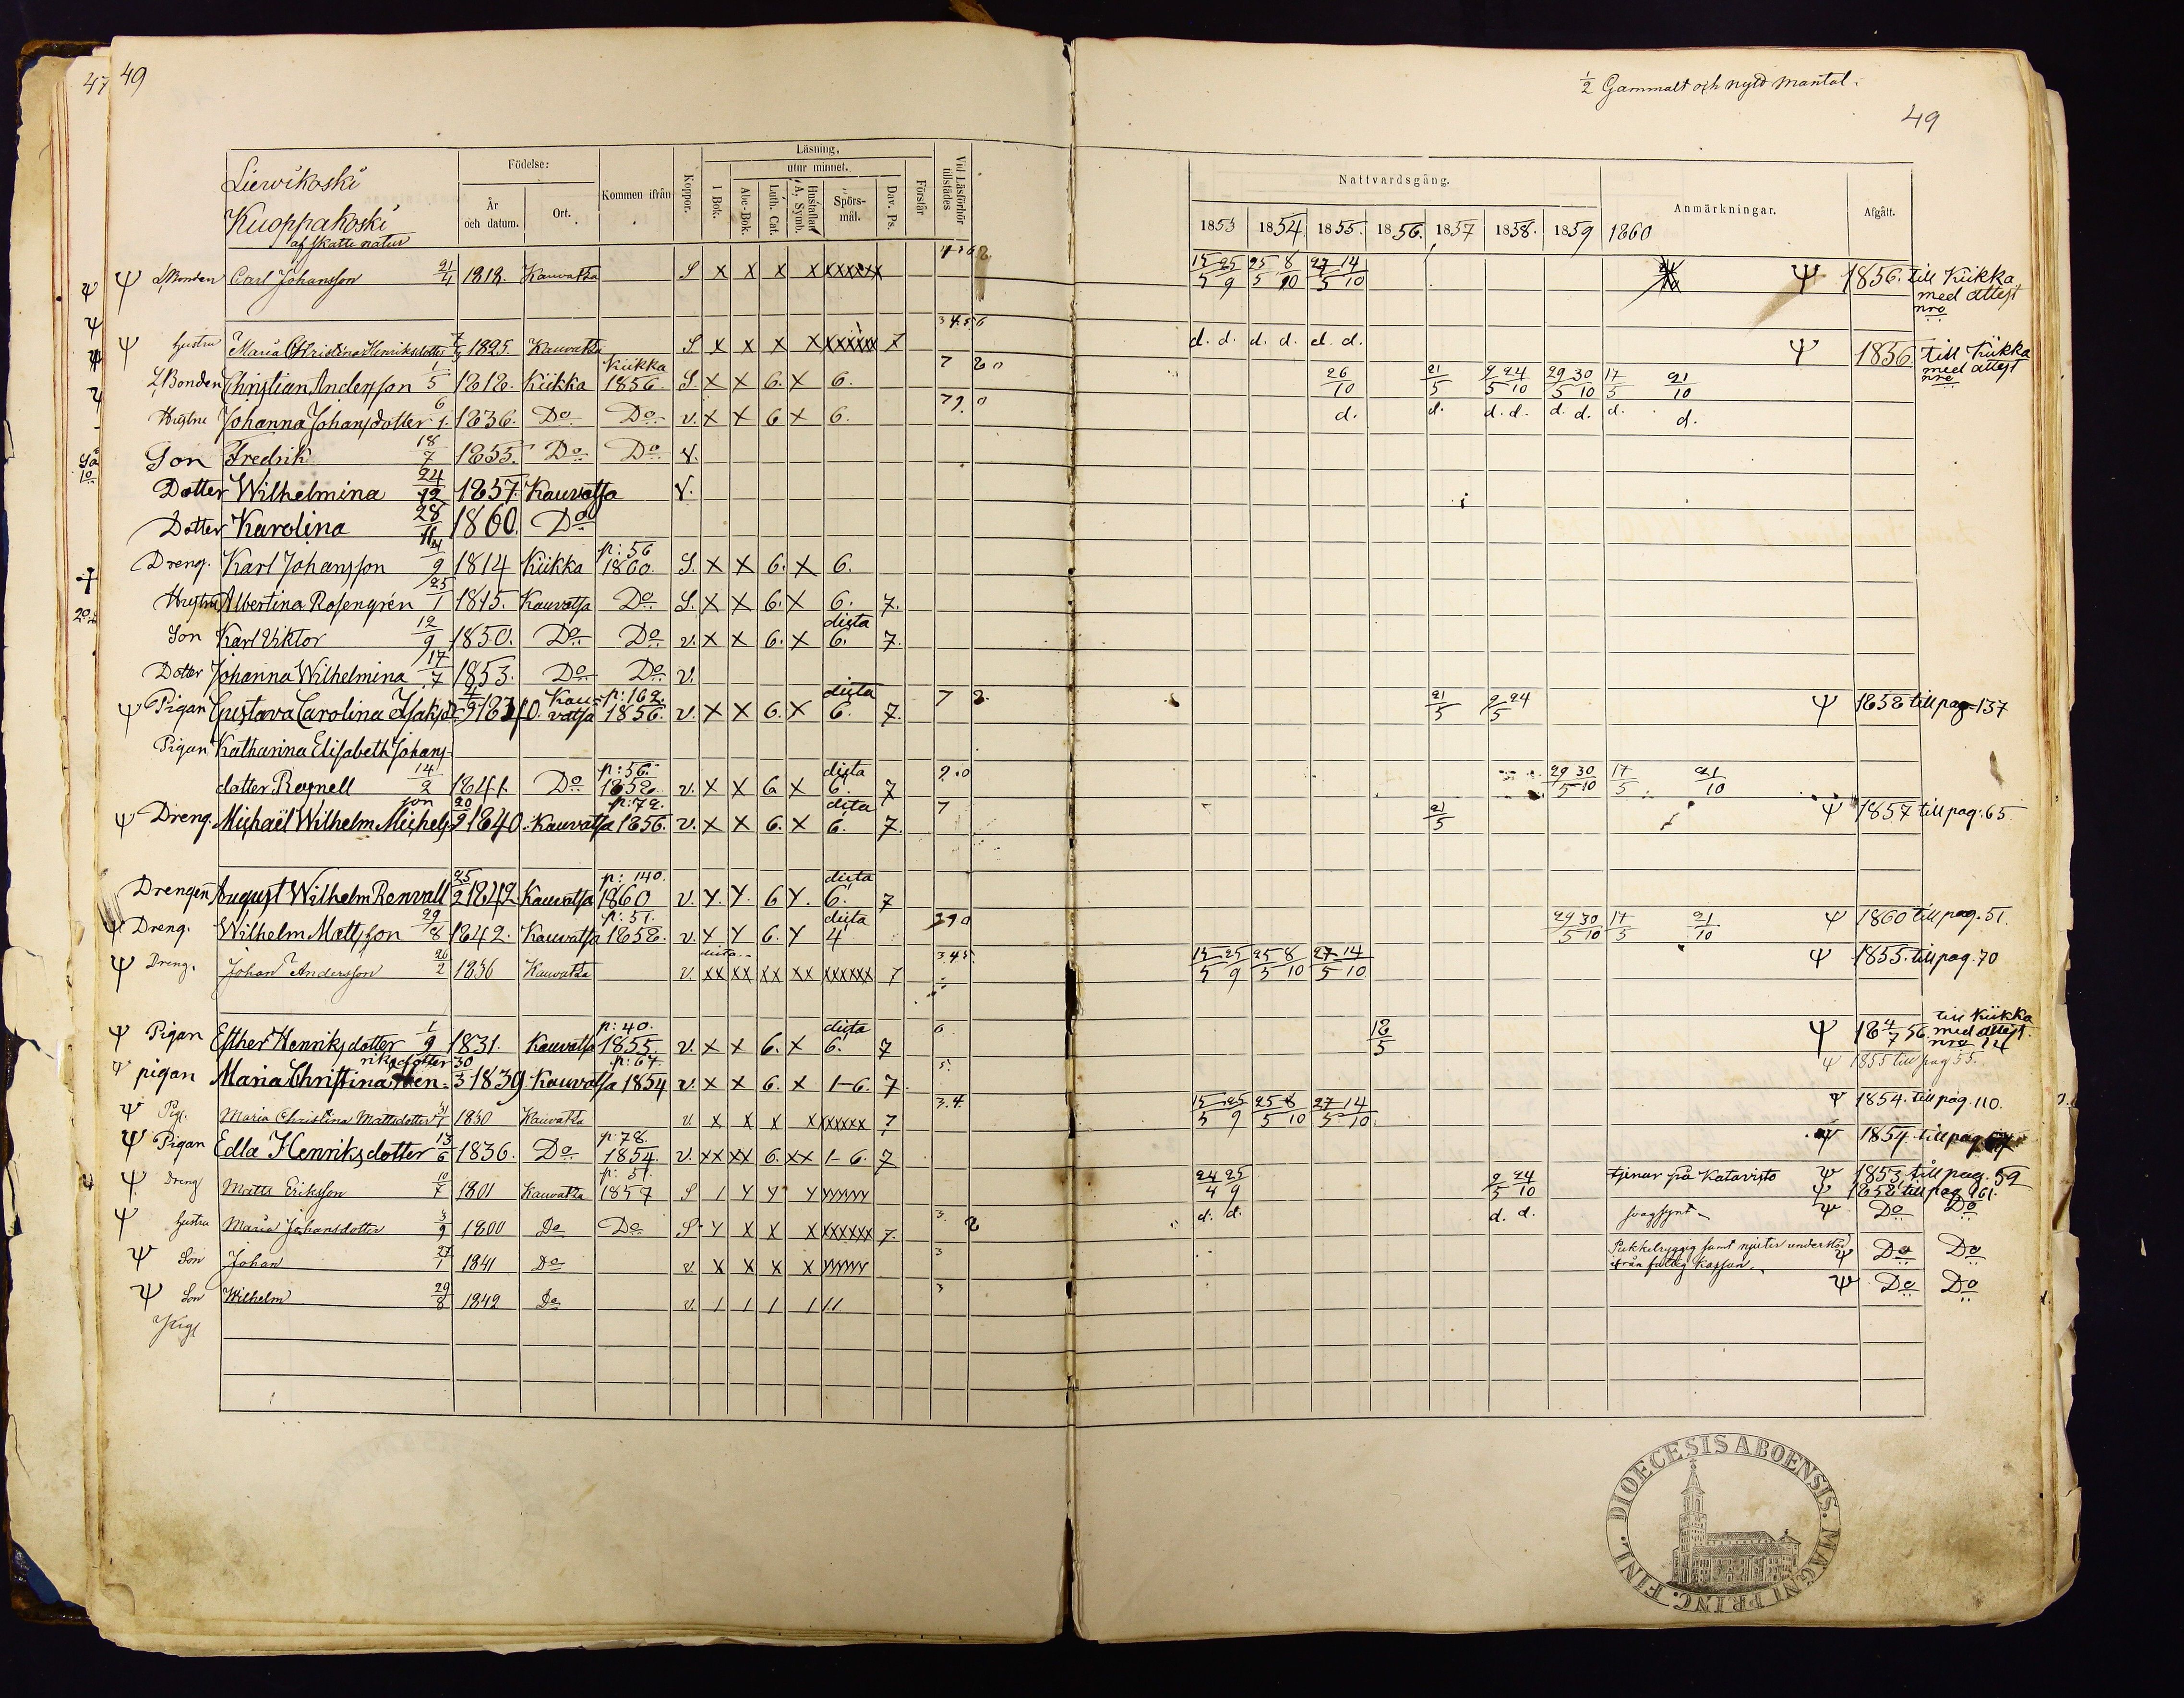 47 49
1/2 Gammalt och nytt mantal.
49
Lievikoski
Kuoppakoski
af skatte natur
Födelse: År och datum. Ort. Kommen ifrån Koppor. Läsning, utur minnet. I Bok. Abc-Bok. Luth. Cat. Hustaflan A, Symb. Spörs-mål. Dav. Ps. Förstår Vid Läsförhör tillstädes
Nattvardsgång. 1853 1854. 1855. 1856. 1857 1858. 1859 1860 Anmärkningar. Afgått.
Carl Johansson 21/4 1818. Kauvatsa S X X X X XXXXXX 15/5 25/9 25/5 8/10 27/5 14/10 Ψ 1856. till Kiikka med attest nro
Ψ hustru Maria Christina Henriksdotter 1825. Kauvatsa S X X X X XXXXXX 7 3 4 5 6 d. d. d. d. d. d. Ψ 1856 till Kiikka med attest nro
Bonden Christian Andersson 1/5 1818. Kiikka Kiikka 1856. S. X X 6. X 6. 7 26/10 21/5 9/5 24/10 29/5 30/10 17/5 21/10
Hustru Johanna Johansdotter 6/1. 1836. Do Do v. X X 6 X 6. 79. 0 d. d. d. d. d. d. d. d.
Son Fredrik 18/7 1855. Do Do v.
Dotter Wilhelmina 24/12 1857. Kauvatsa v.
Dotter Karolina 28/11 1860. Do
Dreng. Karl Johansson 9 1814 Kiikka p: 56 1860. S. X X 6. X 6.
Hustru Albertina Rosengrén 25/1 1815. Kauvatsa Do S. X X 6. X 6. 7.
Son Karl Viktor 12/9 1850. Do Do v. X X 6. X dista 6. 7.
Dotter Johanna Wilhelmina 17/7 1853. Do Do v.
Ψ Pigan Gustava Carolina Isaksdr Kauvatsa p: 162. 1856. v. X X 6. X dista 6. 7. 7 21/5 9/5 24 Ψ 1858 till pag. 137
Pigan Katharina Elisabeth Johans-
dotter Rosnell 14/2 1841. Do p: 56. 1858. v. X X 6 X dista 6. 7 9.0 29/5 30/10 17/5 21/10
Ψ Dreng. Michaël Wilhelm Michelsson 20/9 1840. Kauvatsa p: 72. 1856. v. X X 6. X dista 6. 7. 7 21/5 Ψ 1857 till pag. 65
Drengen August Wilhelm Renvall 25/2 1842 Kauvatsa p: 140. 1860 v. Y. Y. 6 Y. dista 6. 7
Ψ Dreng. Wilhelm Mattsson 29/8 1842. Kauvatsa p: 51. 1858. v. Y Y 6. Y dista 4 29/5 30/10 17/5 21/10 Ψ 1860 till pag. 51.
Ψ Dreng. Johan Andersson 26/2 1836 Kauvatsa v. XX XX XX XX XXXXXX 7 3.4.5. 15/5 25/9 25/5 8/10 27/5 14/10 Ψ 1855. till pag. 70
Ψ Pigan Esther Henriksdotter 1/9 1831. Kauvatsa p: 40. 1855 v. X X 6. X dista 6. 7 6 18/5 Ψ 18 4/7 56. till Kiikka med attest. nro 14
Ψ pigan Maria Christina Henriksdotter 30/3 1839. Kauvatsa p: 67. 1854 v. X X 6. X 1-6. 7. 5. Ψ 1855 till pag 55.
Ψ Pig. Maria Christina Mattsdotter 1830 Kauvatsa v. X X X X XXXXXX 7 3.4. 15/5 25/9 25/5 8/10 27/5 14/10. Ψ 1854. till pag. 110.
Ψ Pigan Edla Henriksdotter 13/6 1836. Do p: 78. 1854. v. XX XX 6. XX 1-6. 7 Ψ 1854. till pag
Ψ Dreng Matts Eriksson 10/7 1801 Kauvatsa p: 51. 1857 S / Y Y Y YYYYYY 24/4 25/9 9/5 24/10 tjenar på Katavisto Ψ 1853, till pag. 59
Ψ 1858 till pag 161.
Ψ hustru Maria Johansdotter 3/9 1800 Do Do S Y X X X XXXXXX 7. 3. d. d. d. d. svagsynt Ψ Do Do
Ψ Son Johan 27/1 1841 Do v X X X X YYYYYY 3 Pukkelryggig samt njuter understöd ifrån fattig kassan Ψ Do Do
Ψ Son Wilhelm 29/8 1842 Do v. / / / / // 3 Ψ Do Do
Pig
DIOECESIS ABOENSIS. MAGNI PRINC. FINL.